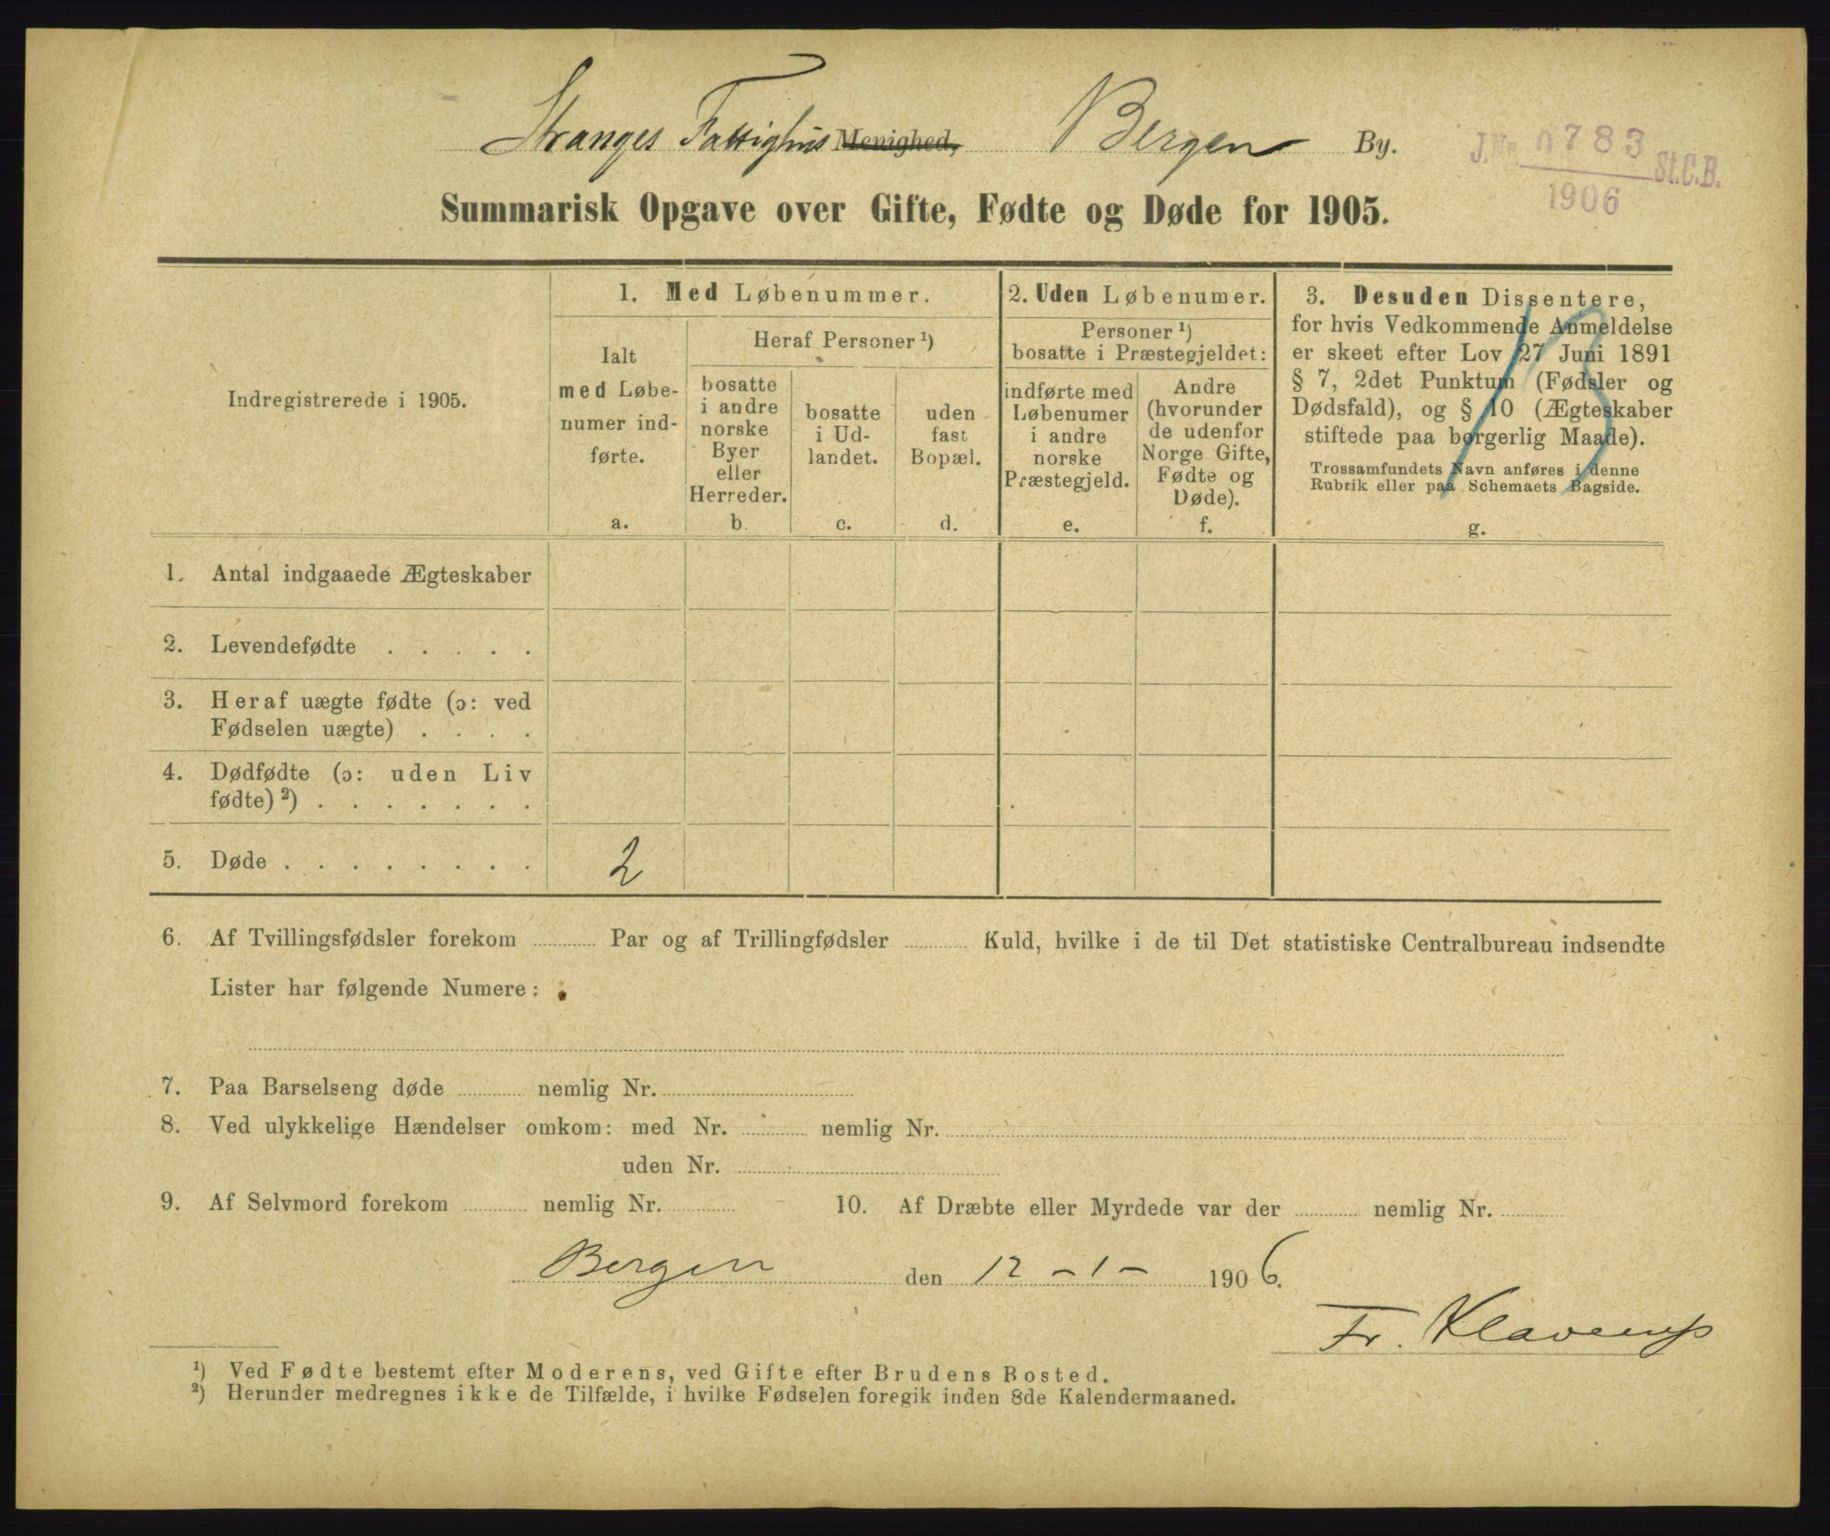 Stranges Fattighus Menighed, Bergen By.
J.Nr. 0783 St.C.B.
1906
Summarisk Opgave over Gifte, Fødte og Døde for 1905.
Indregistrerede i 1905.
1. Med Løbenummer.
Ialt
med Løbe-
numer ind-
førte.
a.
Heraf Personer ¹)
bosatte
i andre
norske
Byer
eller
Herreder.
b.
bosatte
i Ud-
landet.
c.
uden
fast
Bopæl.
d.
2. Uden Løbenumer.
Personer ¹)
bosatte i Præstegjeldet:
indførte med
Løbenumer
i andre
norske
Præstegjeld.
e.
Andre
(hvorunder
de udenfor
Norge Gifte,
Fødte og
Døde).
f.
3. Desuden Dissentere,
for hvis Vedkommende Anmeldelse
er skeet efter Lov 27 Juni 1891
§ 7, 2det Punktum (Fødsler og
Dødsfald), og § 10 (Ægteskaber
stiftede paa borgerlig Maade).
Trossamfundets Navn anføres i denne
Rubrik eller paa Schemaets Bagside.
g.
13
1. Antal indgaaede Ægteskaber
2. Levendefødte . . . . .
3. Heraf uægte fødte (ɔ: ved
Fødselen uægte) . . . .
4. Dødfødte (ɔ: uden Liv
fødte) ²) . . . . . . .
5. Døde . . . . . . . . 2
6. Af Tvillingsfødsler forekom ........ Par og af Trillingfødsler ........ Kuld, hvilke i de til Det statistiske Centralbureau indsendte
Lister har følgende Numere:
7. Paa Barselseng døde ........ nemlig Nr. ........
8. Ved ulykkelige Hændelser omkom: med Nr. ........ nemlig Nr. ........
uden Nr. ........
9. Af Selvmord forekom ........ nemlig Nr. ........ 10. Af Dræbte eller Myrdede var der ........ nemlig Nr. ........
Bergen den 12 - 1 - 1906.
Fr. Klaverup
¹) Ved Fødte bestemt efter Moderens, ved Gifte efter Brudens Bosted.
²) Herunder medregnes ikke de Tilfælde, i hvilke Fødselen foregik inden 8de Kalendermaaned.